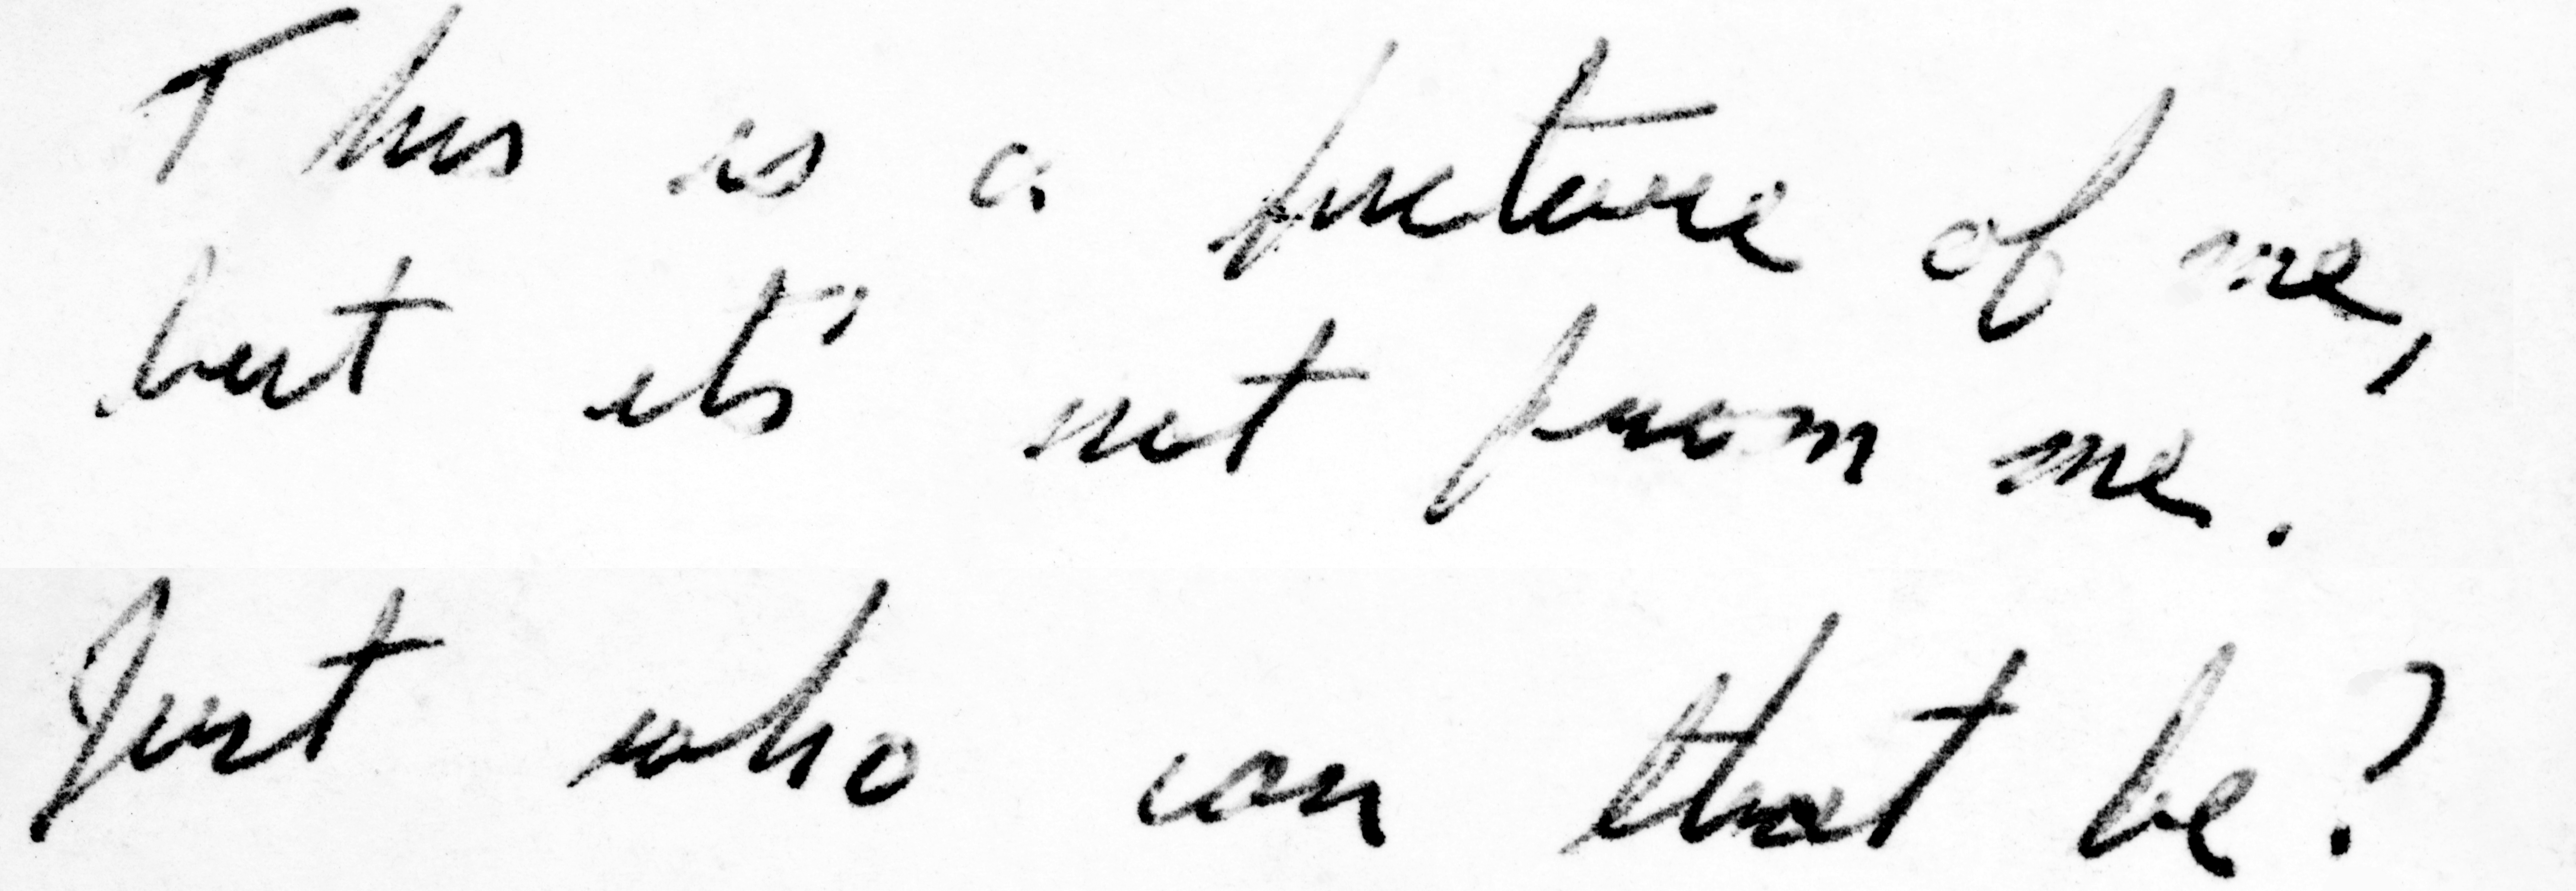 This is a picture of me,
but it's not from me.
Just who can that be?